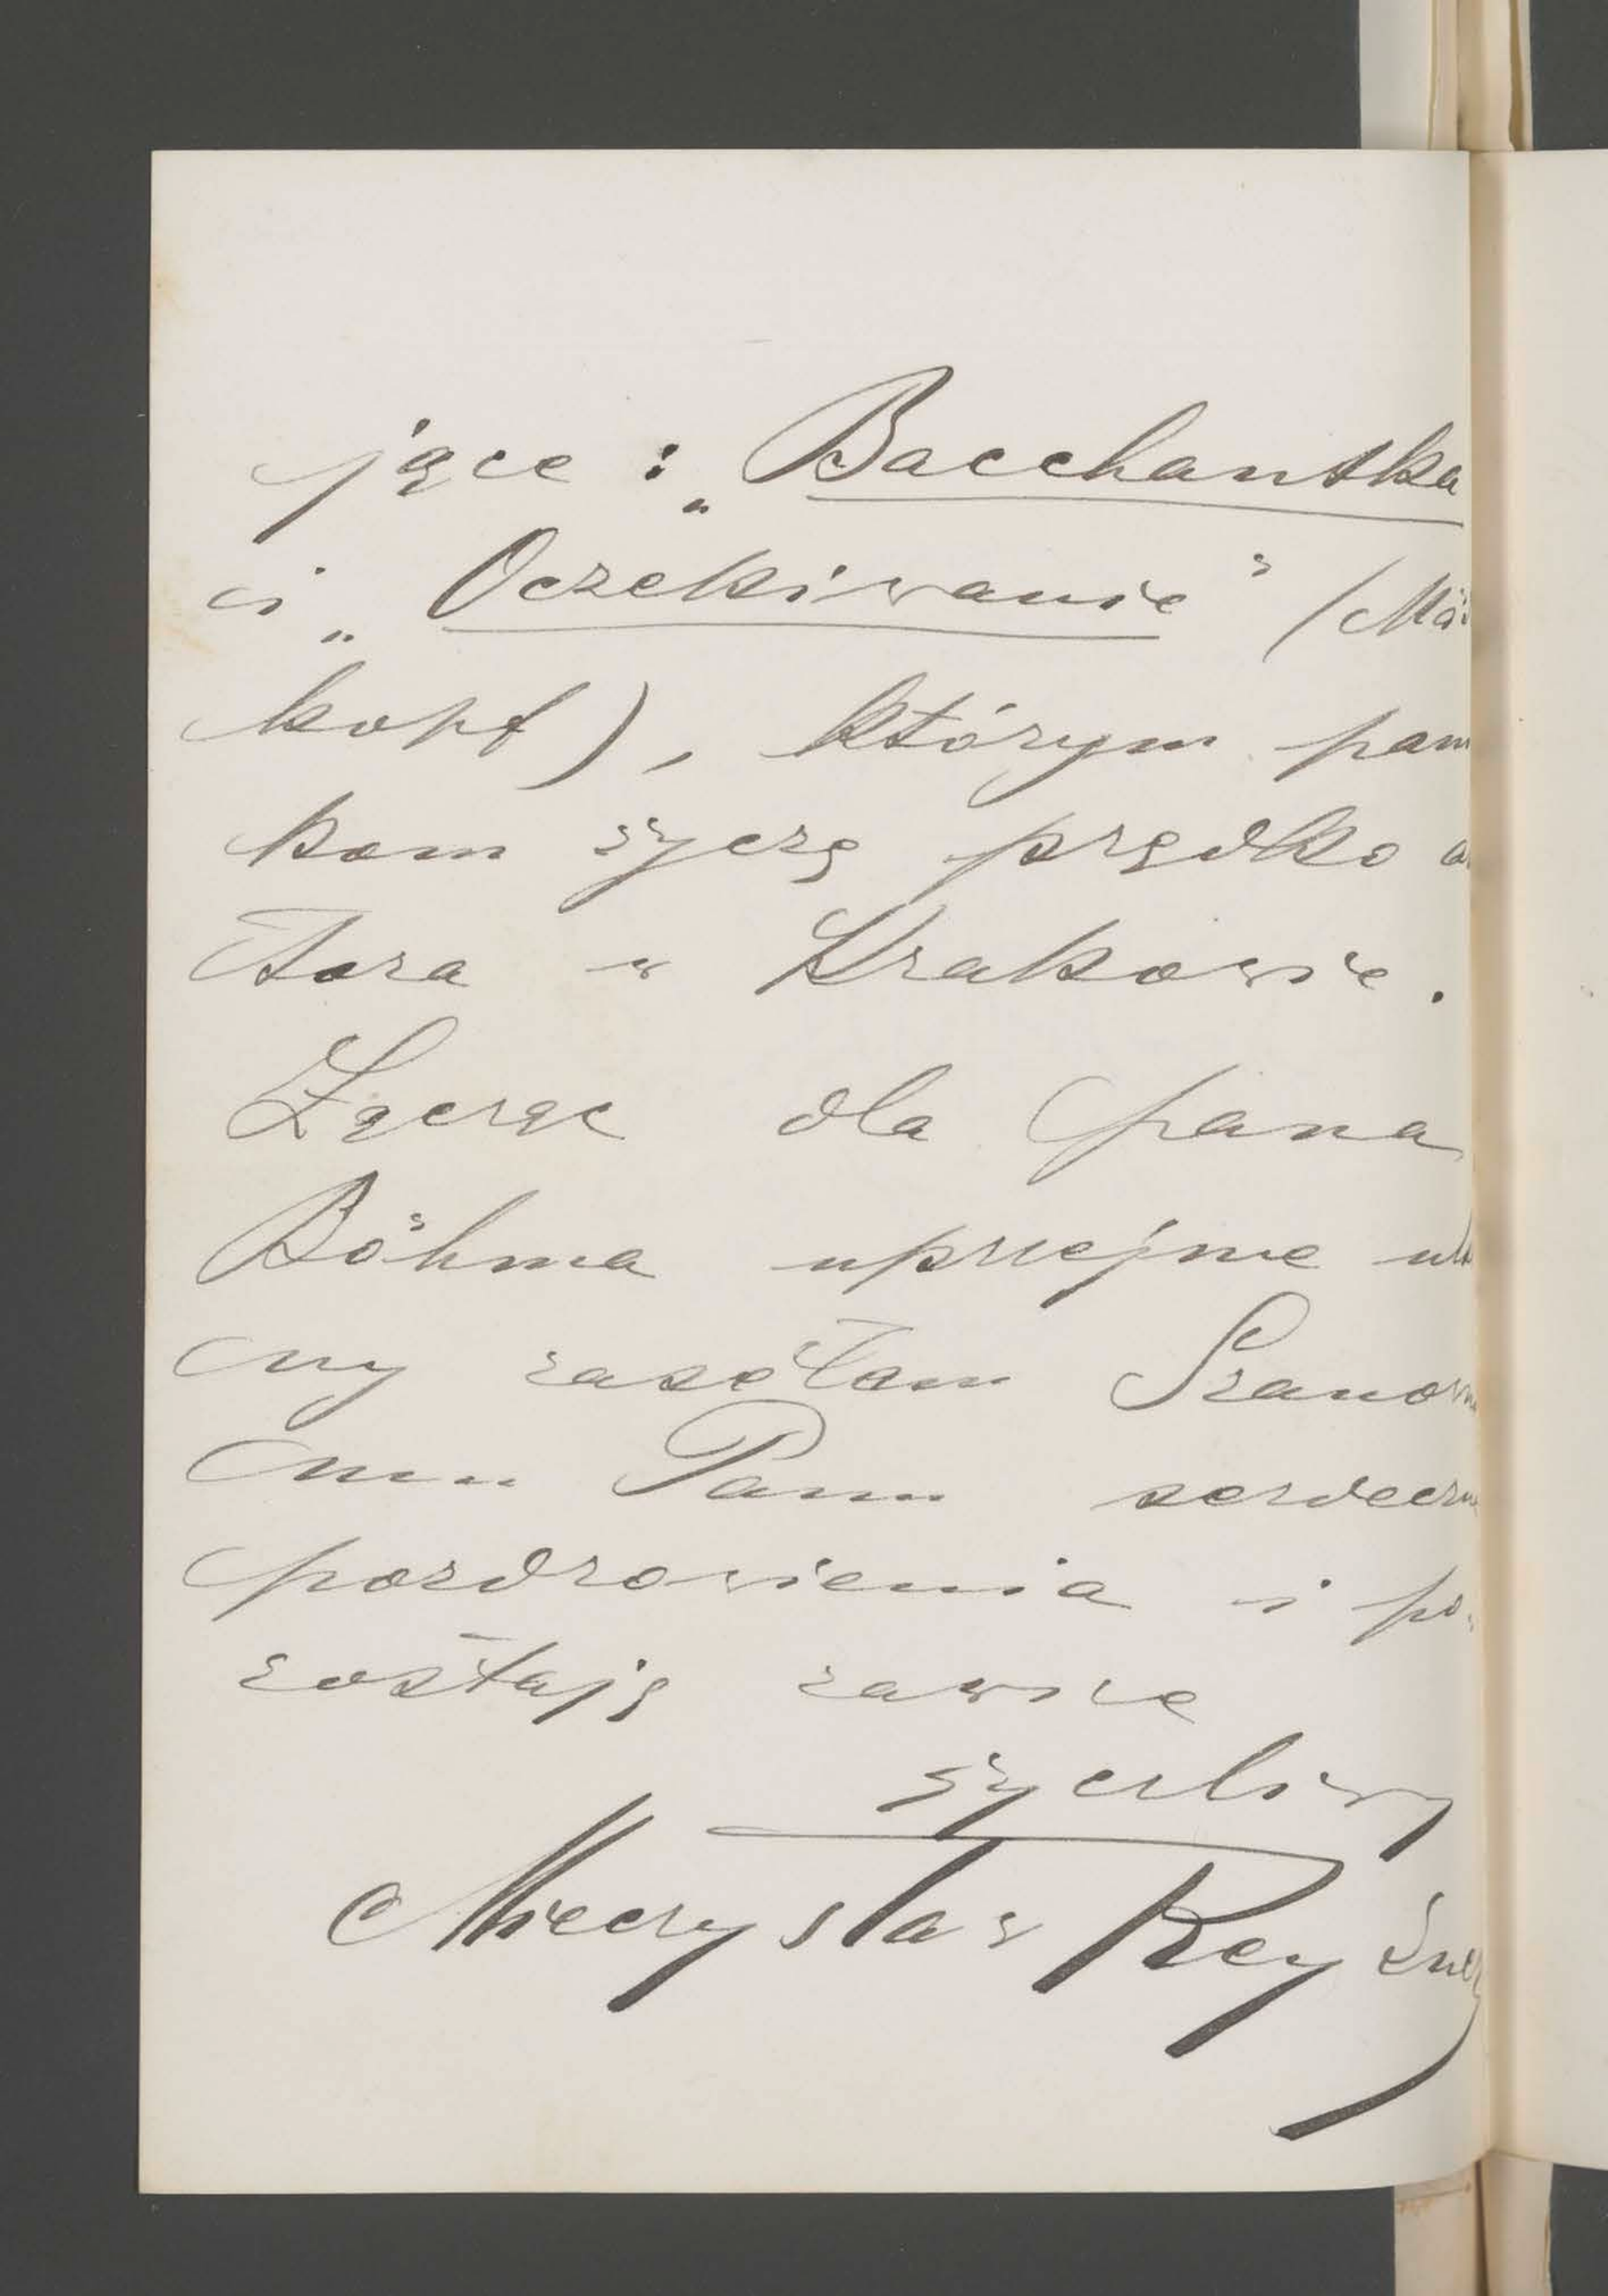 jące: „Bacchantka
i „Oczekiwanie" (Mä
kopf), którym pam
kom życzę prędko a
tora w Krakowie.
Łącząc dla pana
Böhma uprzejme uk
ny zasełam Szanow
mu Panu serdeczn
pozdrowienia i po
zostaję zawsze
życzliwy
Mieczysław Rey